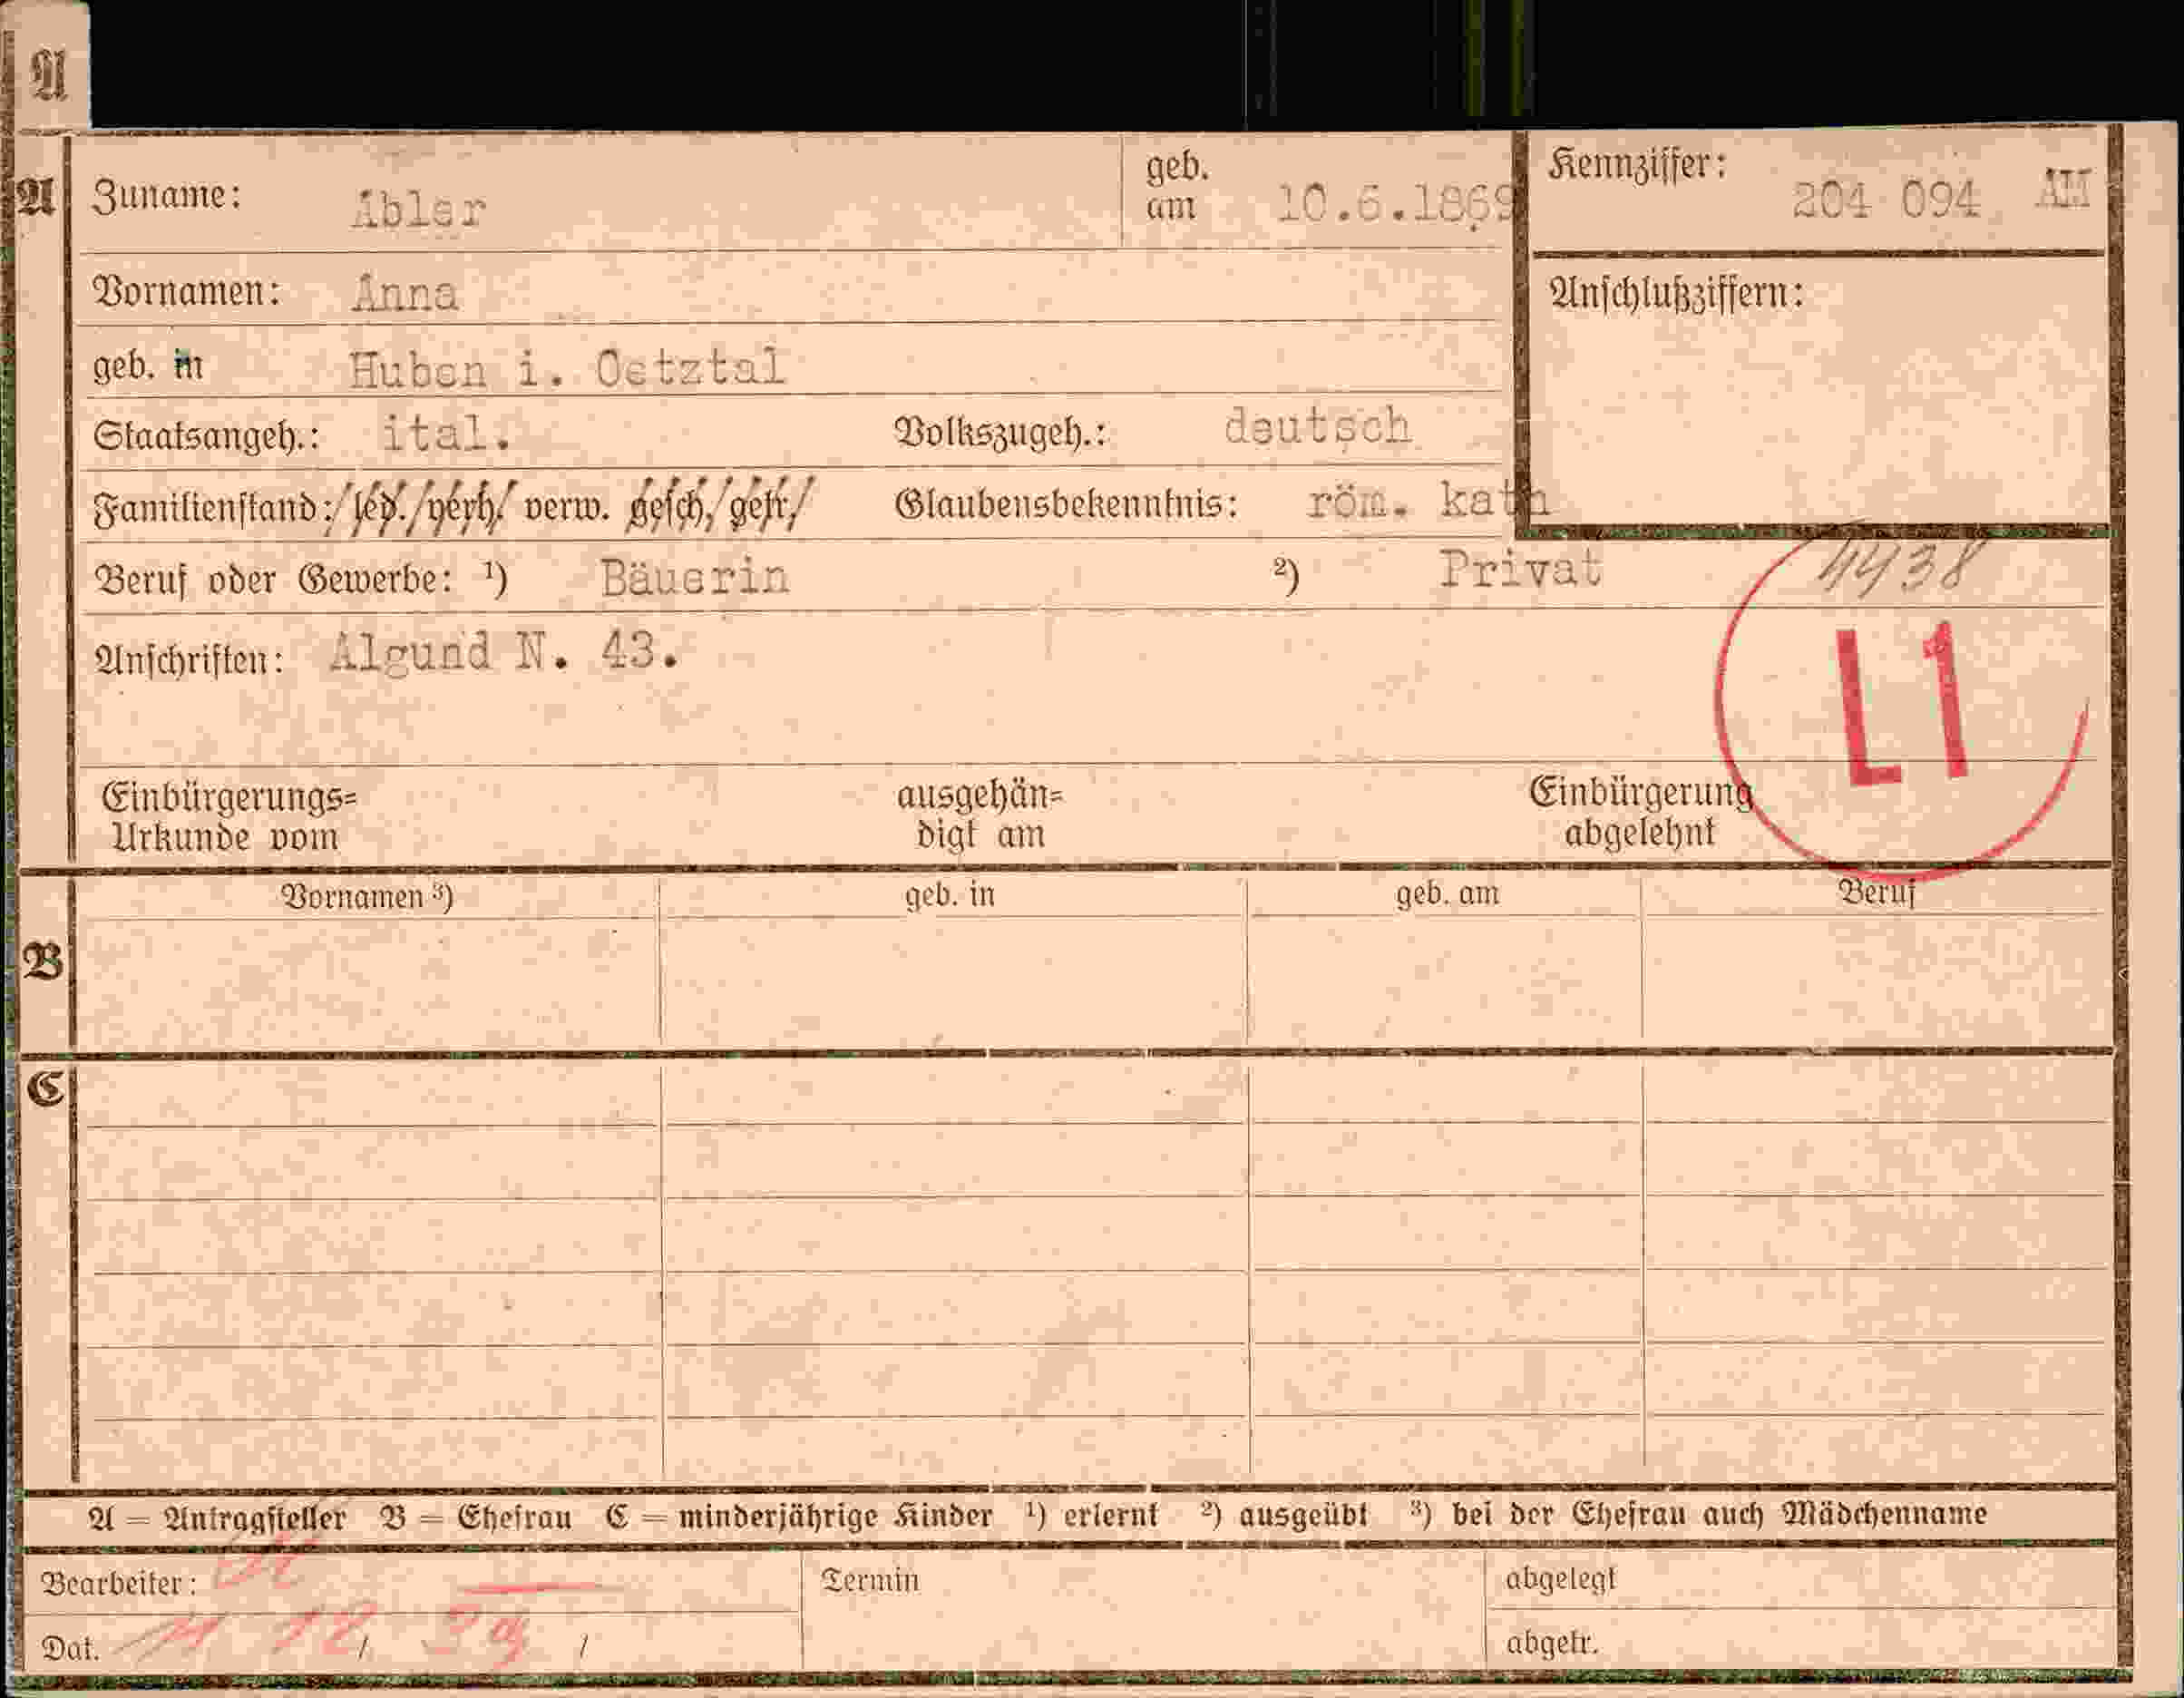 A
A
Zuname: Abler
geb. am 10.6.1869
Kennziffer: 204 094 AM
Vornamen: Anna
Anschlußziffern:
geb. in Huben i. Oetztal
Staatsangeh.: ital. Volkszugeh.: deutsch
Familienstand: led. verh. verw. gesch. getr. Glaubensbekenntnis: röm. kath
Beruf oder Gewerbe: ¹) Bäuerin ²) Privat
4438
Anschriften: Algund N. 43.
L1
Einbürgerungs= ausgehän= Einbürgerung
Urkunde vom digt am abgelehnt
Vornamen ³) geb. in geb. am Beruf
B
C
A = Antragsteller B = Ehefrau C = minderjährige Kinder ¹) erlernt ²) ausgeübt ³) bei der Ehefrau auch Mädchenname
Bearbeiter: Termin abgelegt
Dat. 11 12 39 abgetr.